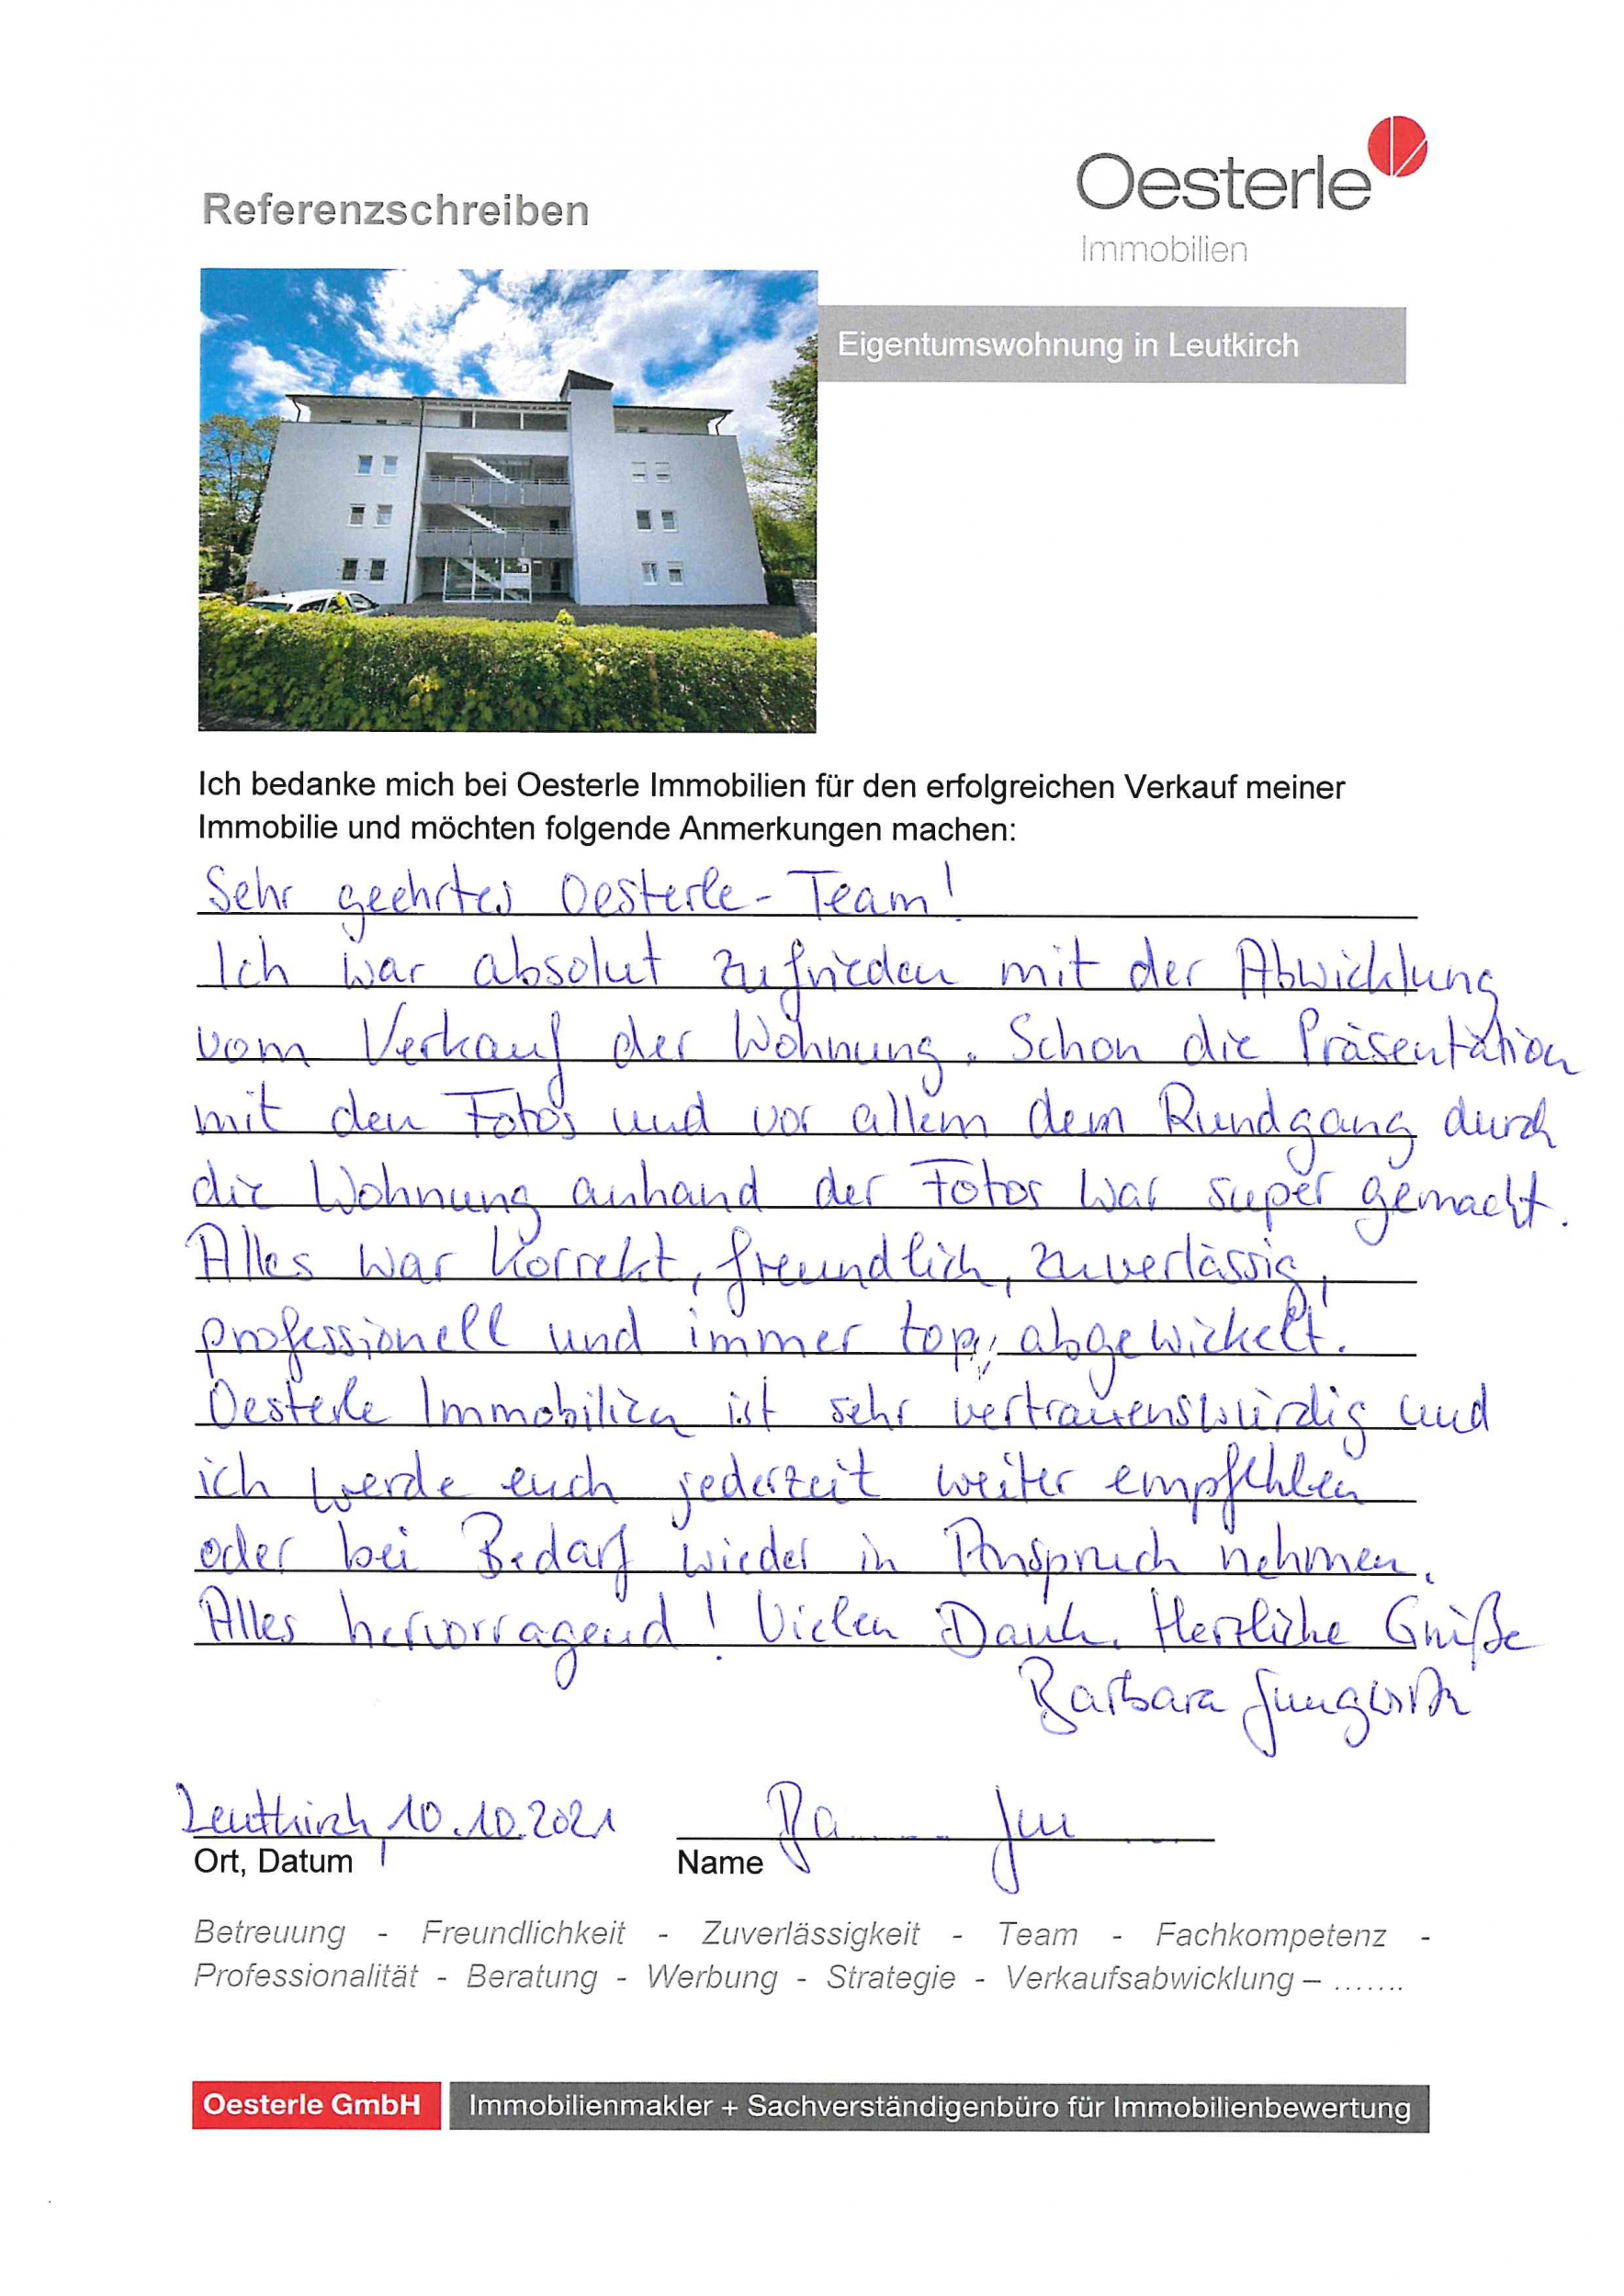 Referenzschreiben
Oesterle
Immobilien
Eigentumswohnung in Leutkirch
Ich bedanke mich bei Oesterle Immobilien für den erfolgreichen Verkauf meiner
Immobilie und möchten folgende Anmerkungen machen:
Sehr geehrtes Oesterle-Team!
Ich war absolut zufrieden mit der Abwicklung
vom Verkauf der Wohnung. Schon die Präsentation
mit den Fotos und vor allem dem Rundgang durch
die Wohnung anhand der Fotos war super gemacht.
Alles war korrekt, freundlich, zuverlässig,
professionell und immer top, abgewickelt.
Oesterle Immobilien ist sehr vertrauenswürdig und
ich werde euch jederzeit weiter empfehlen
oder bei Bedarf wieder in Anspruch nehmen.
Alles hervorragend! Vielen Dank. Herzliche Grüße
Barbara Jungwirth
Leutkirch, 10.10.2021
Ort, Datum
Name
Betreuung - Freundlichkeit - Zuverlässigkeit - Team - Fachkompetenz -
Professionalität - Beratung - Werbung - Strategie - Verkaufsabwicklung – .......
Oesterle GmbH
Immobilienmakler + Sachverständigenbüro für Immobilienbewertung